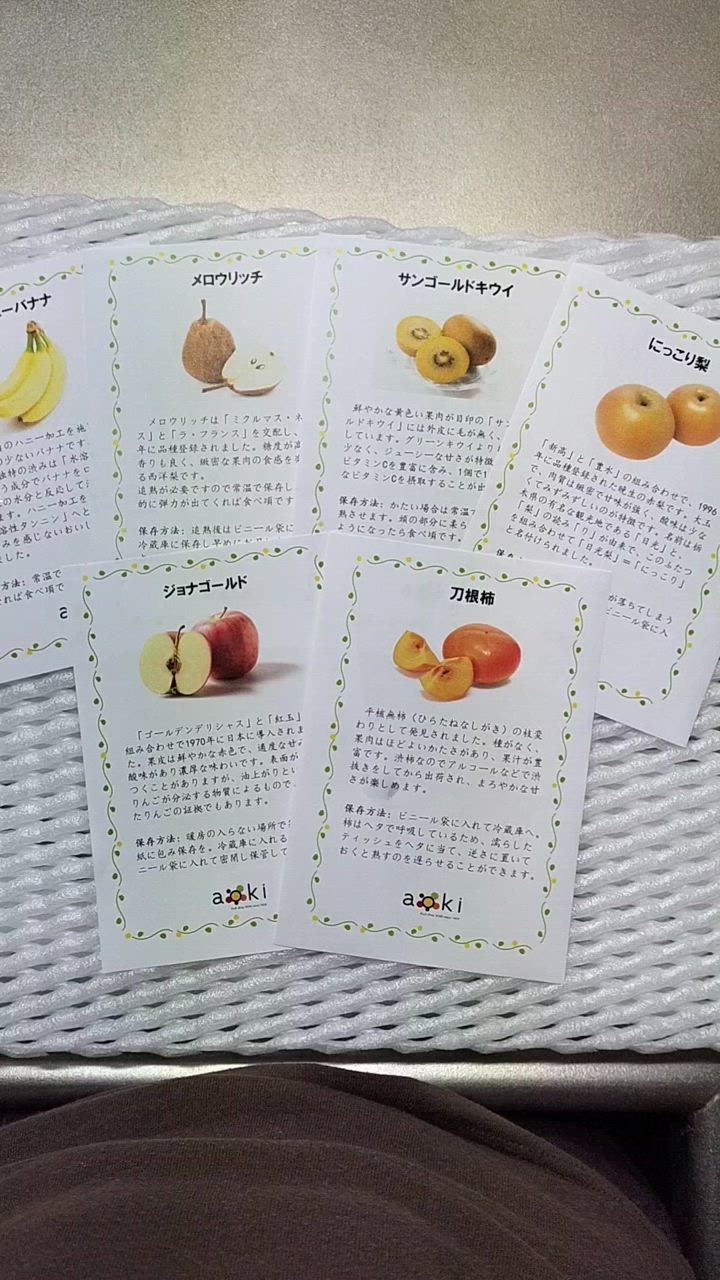 ーバナナ
のハニー加工を施
の少ないバナナです
独特の渋みは「水溶
う成分でバナナを口
の水分と反応して
ます。ハニー加工を
溶性タンニン」へと
みを感じないおいし
ました。
方法: 常温で
れば食べ頃で
メロウリッチ
メロウリッチは「ミクルマス・ネ
ス」と「ラ・フランス」を交配し、
年に品種登録されました。糖度が高
香りも良く、緻密な果肉の食感を
る西洋梨です。
追熟が必要ですので常温で保存し
的に弾力が出てくれば食べ頃です
保存方法: 追熟後はビニール袋に
冷蔵庫に保存し早めに
サンゴールドキウイ
鮮やかな黄色い果肉が目印の「サン
ルドキウイ」には外皮に毛が無く、
しています。グリーンキウイより
少なく、ジューシーな甘さが特徴
ビタミンCを豊富に含み、1個で1
ビタミンCを摂取することが出
保存方法: かたい場合は常温
熟させます。頭の部分に柔ら
ようになったら食べ頃です。
にっこり梨
「新高」と「豊水」の組み合わせで、1996
年に品種登録された晩生の赤梨です。大玉
で、肉質は緻密で甘味が強く、酸味は少な
くてみずみずしいのが特徴です。名前は栃
木県の有名な観光地である「日光」と、
「梨」の読み「り」が由来で、このふたつ
を組み合わせて「日光梨」=「にっこり」
と名付けられました。
が落ちてしまう
ビニール袋に入
ジョナゴールド
「ゴールデンデリシャス」と「紅玉」
組み合わせで1970年に日本に導入されま
た。果皮は鮮やかな赤色で、適度な甘
酸味があり濃厚な味わいです。表面が
つくことがありますが、油上がりとい
りんごが分泌する物質によるもので、
たりんごの証拠でもあります。
保存方法: 暖房の入らない場所で
紙に包み保存を。冷蔵庫に入れる
ニール袋に入れて密閉し保管して
aoki
刀根柿
平核無柿(ひらたねなしがき)の枝変
わりとして発見されました。種がなく、
果肉はほどよいかたさがあり、果汁が豊
富です。渋柿なのでアルコールなどで渋
抜きをしてから出荷され、まろやかな甘
さが楽しめます。
保存方法: ビニール袋に入れて冷蔵庫へ。
柿はヘタで呼吸しているため、濡らした
ティッシュをヘタに当て、逆さに置いて
おくと熟すのを遅らせることができます。
aoki